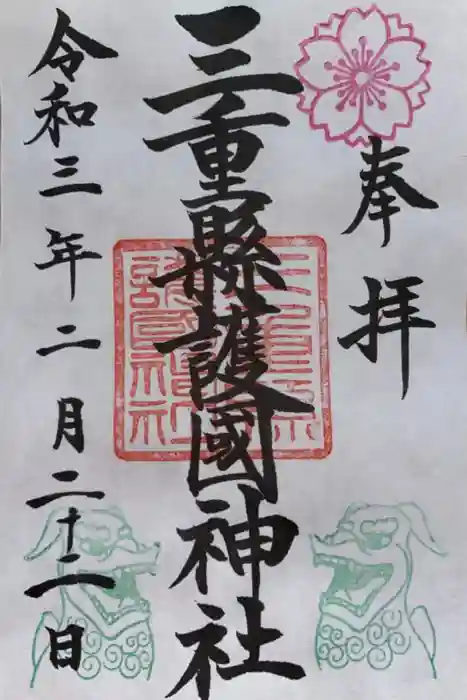 奉拝
三重縣護國神社
令和三年二月二十二日
三重縣護國神社